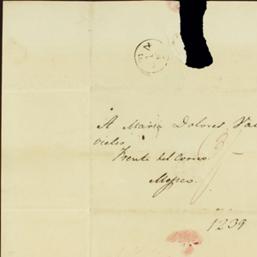 A Maria Dolores Va
Frente del Correo
Mexico
1239